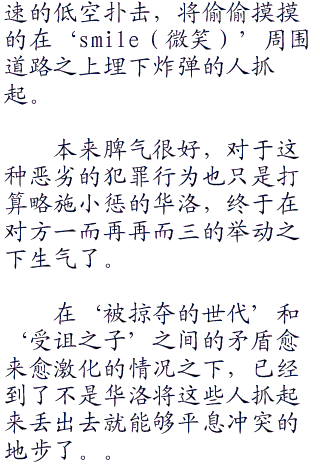 速的低空扑击，将偷偷摸摸
的在‘smile（微笑）’周围
道路之上埋下炸弹的人抓
起。
本来脾气很好，对于这
种恶劣的犯罪行为也只是打
算略施小惩的华洛，终于在
对方一而再再而三的举动之
下生气了。
在‘被掠夺的世代’和
‘受诅之子’之间的矛盾愈
来愈激化的情况之下，已经
到了不是华洛将这些人抓起
来丢出去就能够平息冲突的
地步了。。